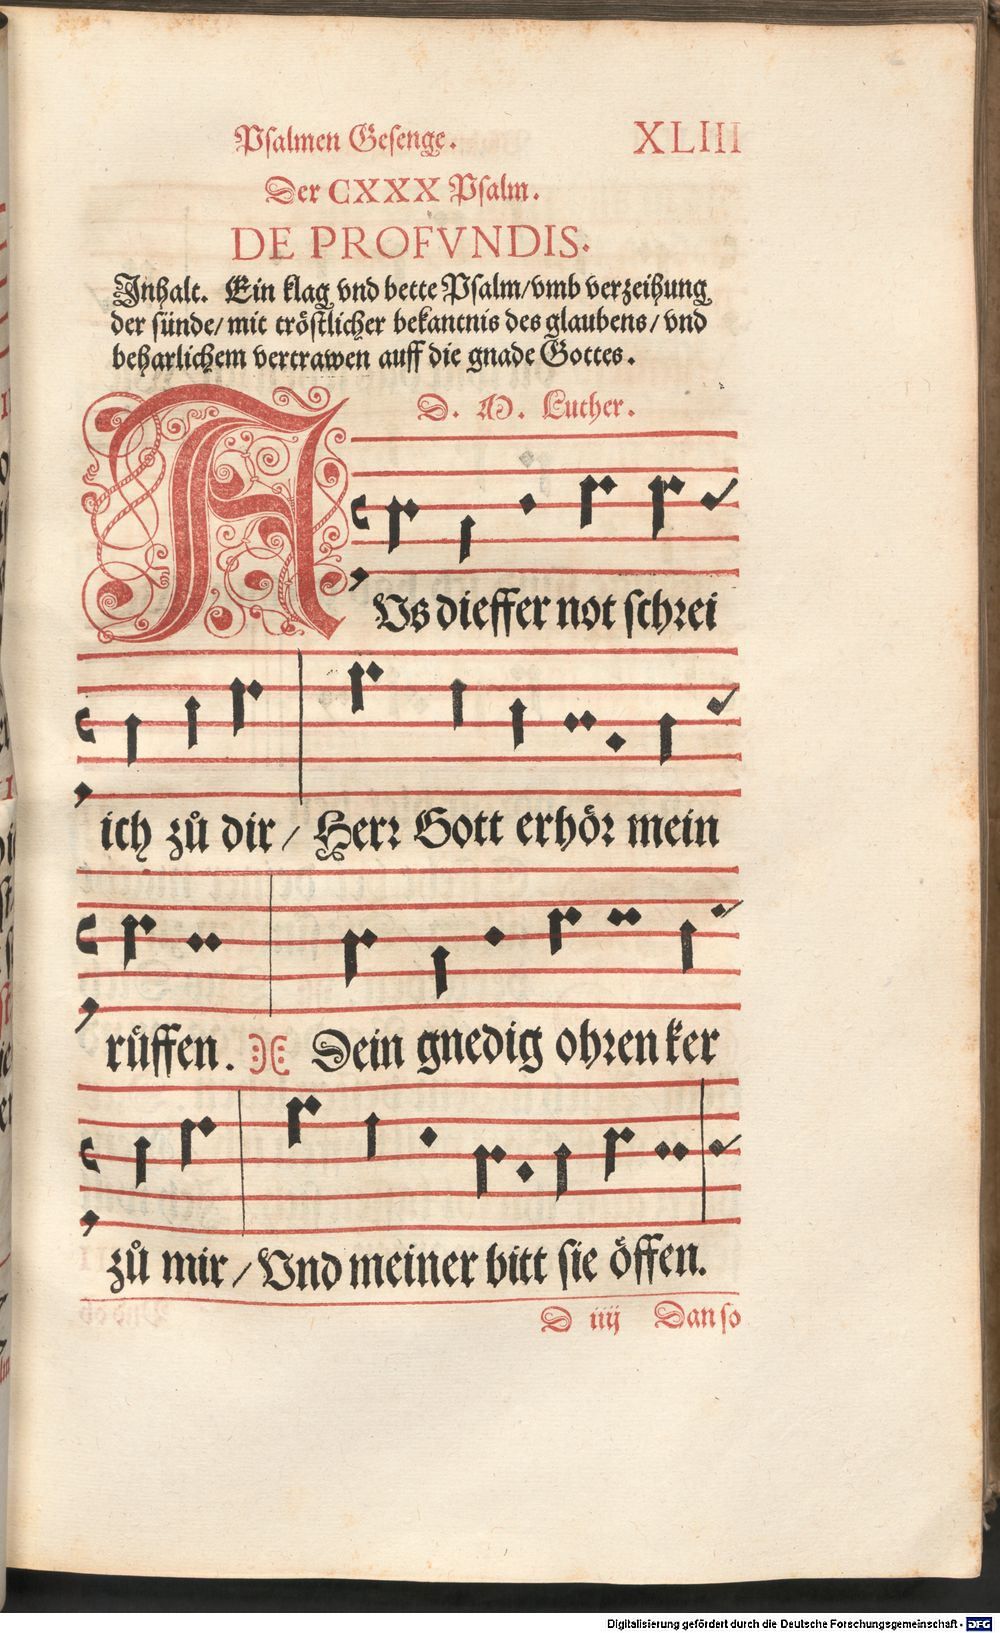 Psalmen Gesenge. XLIII
Der CXXX Psalm.
DE PROFVNDIS.
Inhalt. Ein klag vnd bette Psalm/vmb verzeihung
der sünde/mit tröstlicher bekantnis des glaubens/vnd
beharlichem vertrawen auff die gnade Gottes.
D. M. Luther.
AVs dieffer not schrei
ich zů dir/Herr Gott erhör mein
růffen. Dein gnedig ohren ker
zů mir/Vnd meiner bitt sie öffen.
D iiij Dan so
Digitalisierung gefördert durch die Deutsche Forschungsgemeinschaft - DFG